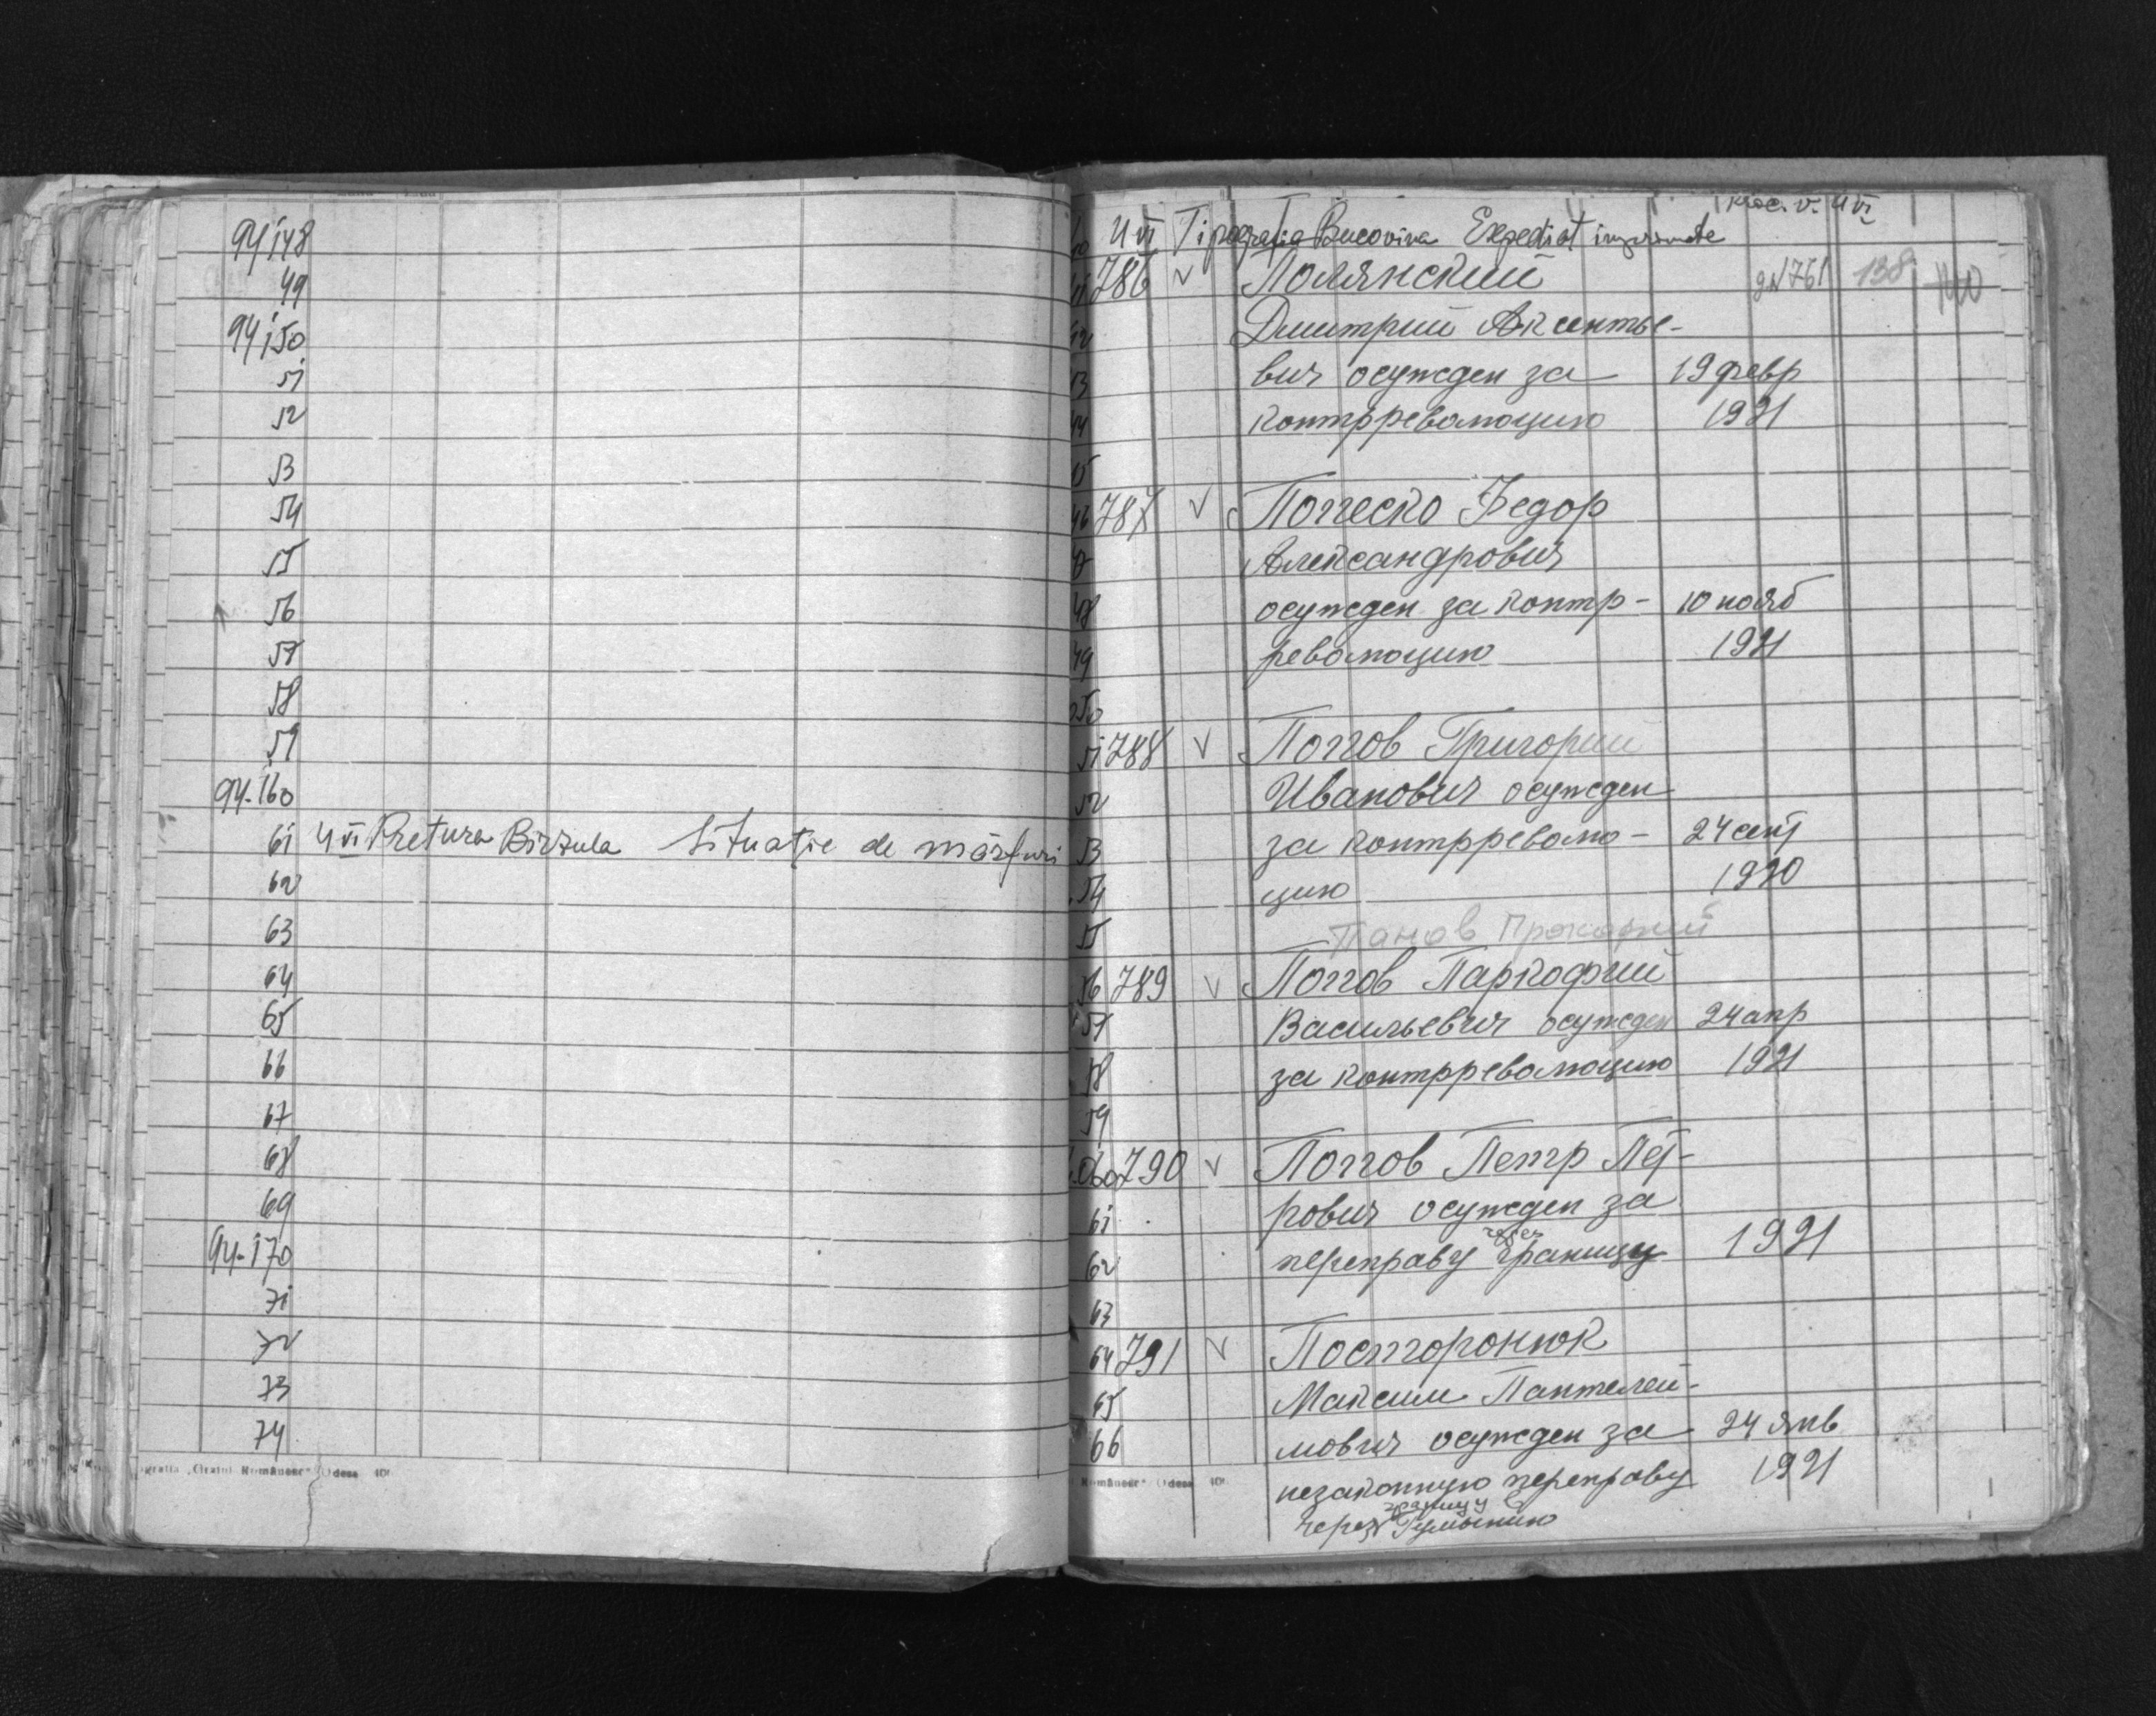 94148
49
94150
51
52
53
54
55
56
57
58
59
94-160
61 4 VI Pretura Birzula Situație de mărfuri
62
63
64
65
66
67
68
69
94-170
71
72
73
74
"Graiul Românesc" Odesa
4 VI Tipografia Bucovina Expediat imprimate
786 v Полянский 761 138 140
Дмитрий Аксентье-
вич осужден за 19 февр
контрреволюцию 1921
45
46 787 v Попеско Федор
47 Александрович
48 осужден за контр- 10 нояб
49 революцию 1921
50
51 788 v Попов Григорий
52 Иванович осужден
53 за контрреволю- 24 сент
54 цию 1920
55 Панов Прокофий
56 789 v Попов Паркофий
57 Васильевич осужден 24 апр
58 за контрреволюцию 1921
59
60 790 v Попов Петр Пет-
61 рович осужден за
через
62 переправу границу 1921
63
64 791 v Посторонюк
65 Максим Пантелей-
66 мович осужден за 24 янв
незаконную переправу 1921
границу
через Румынию
Românesc" Odesa